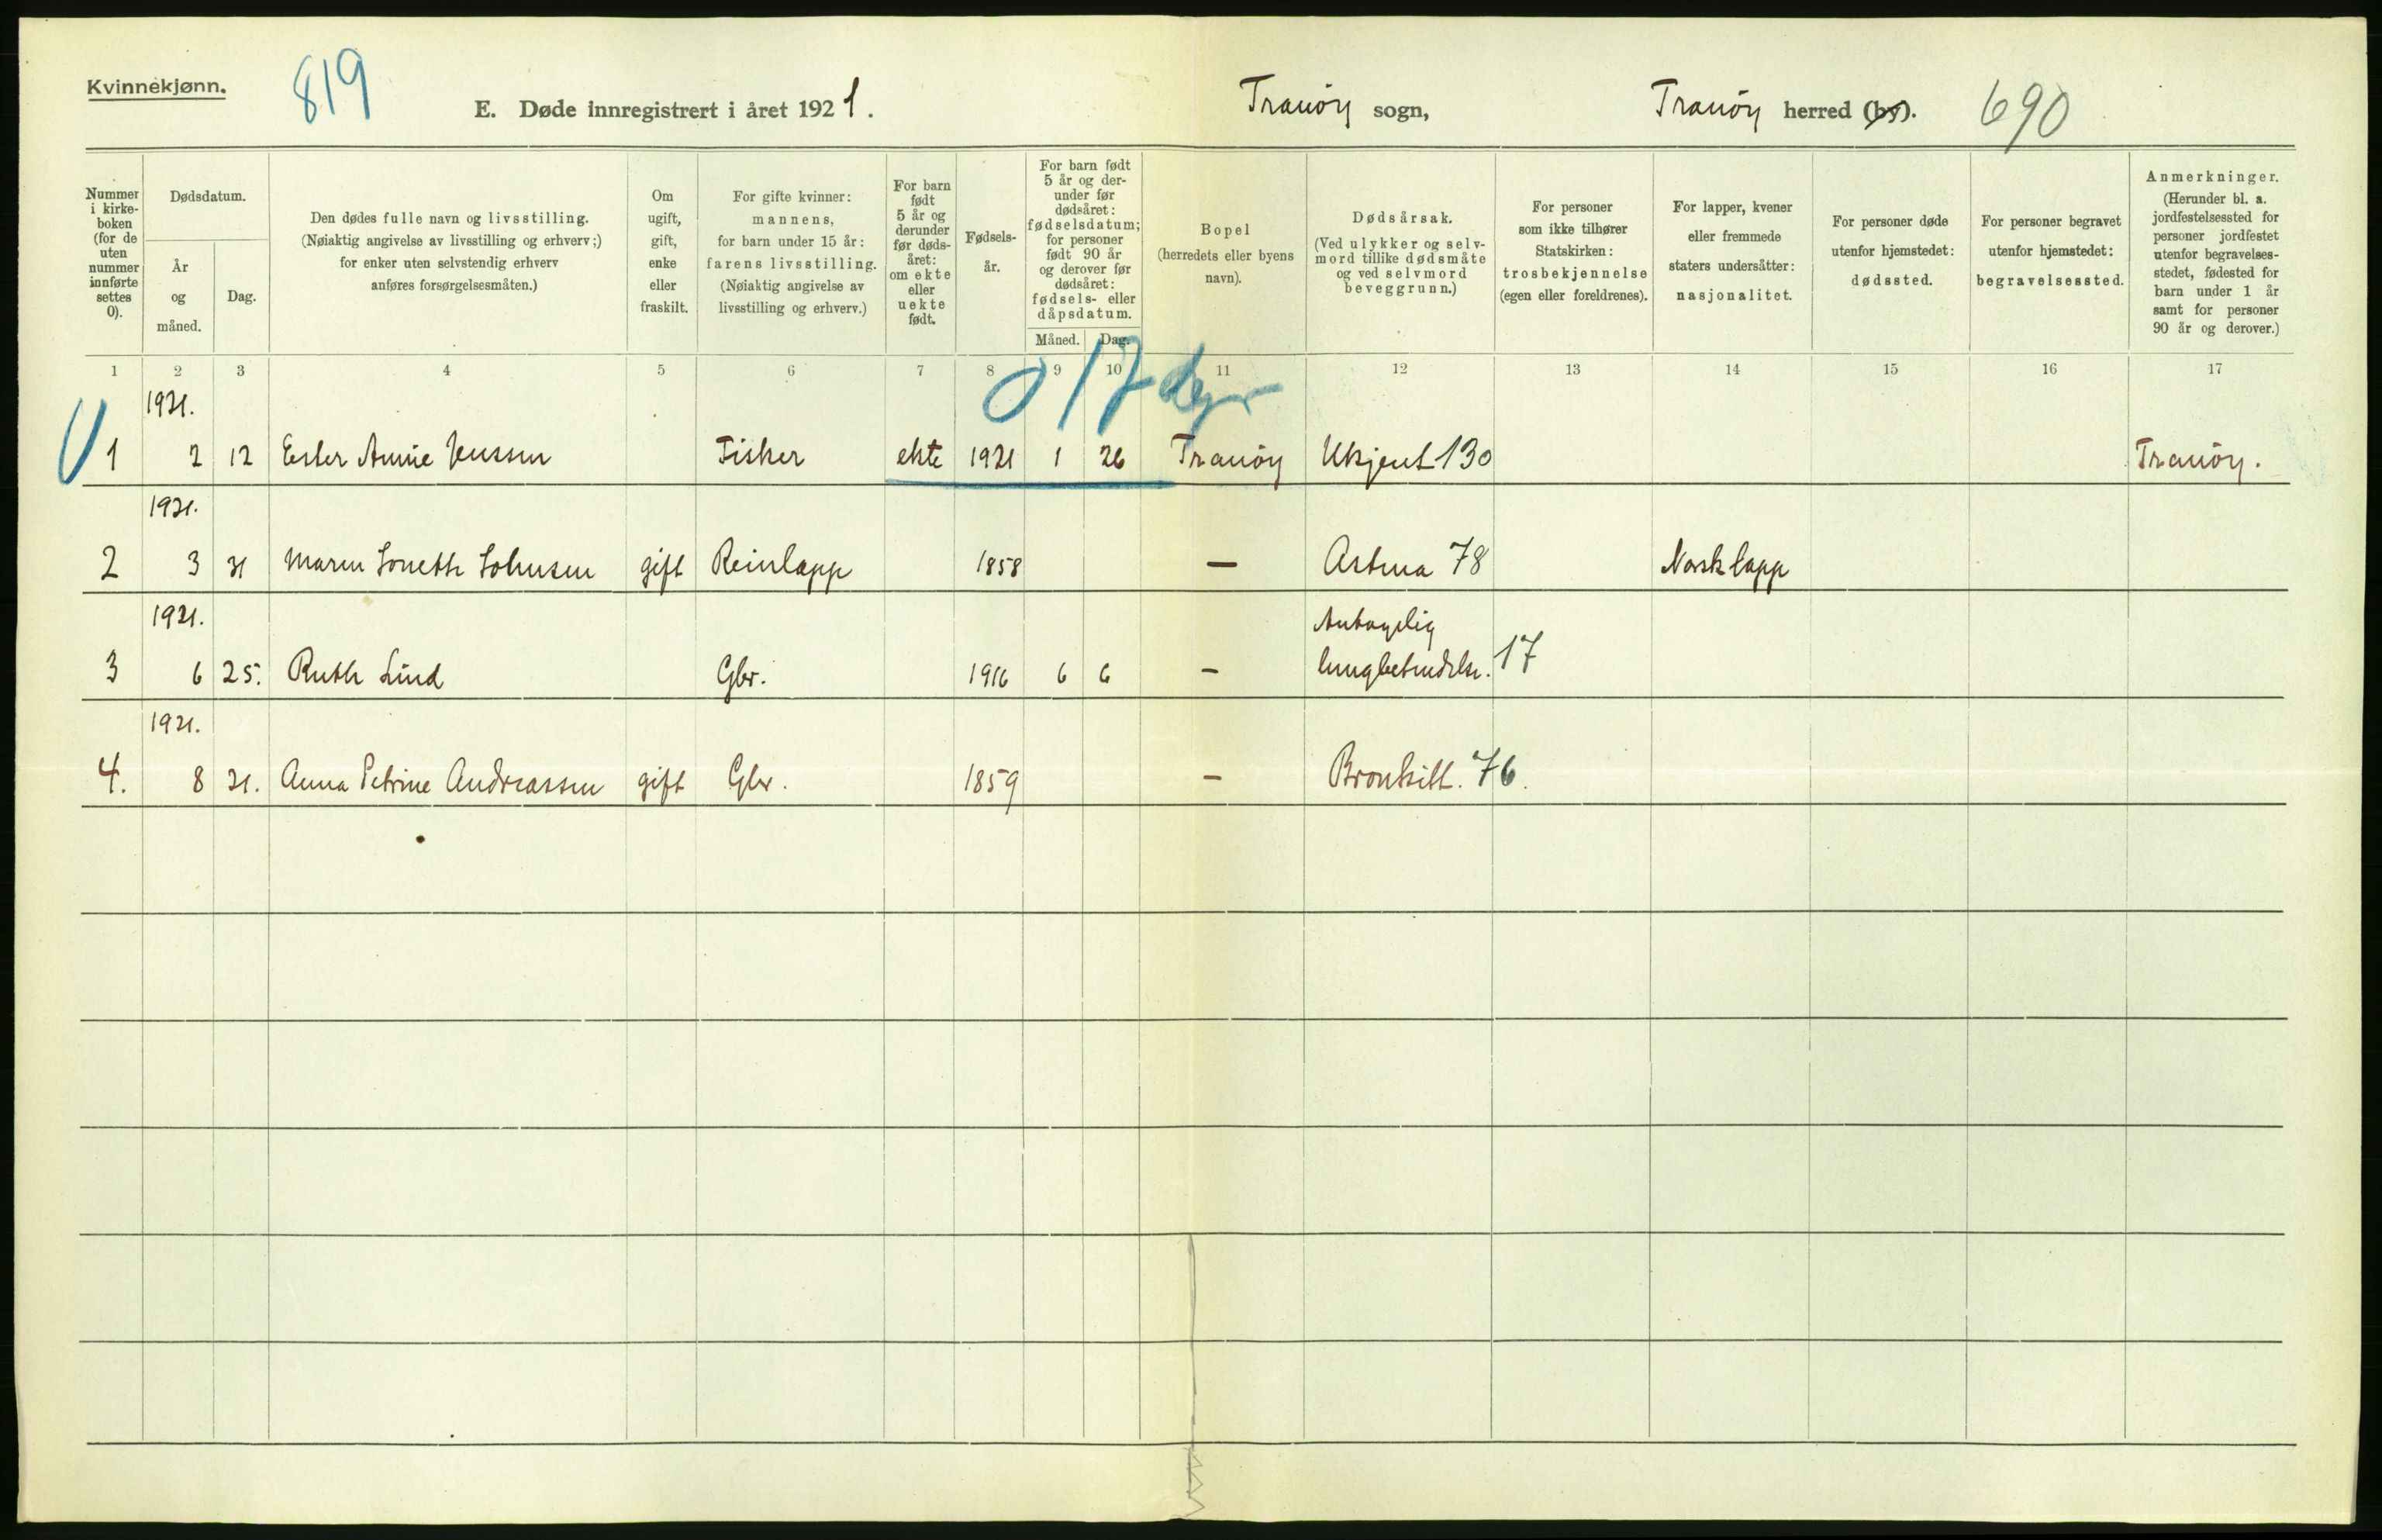 Kvinnekjønn.
819
E. Døde innregistrert i året 1921.
Tranöy sogn,
Tranöy herred (by).
690
Nummer i kirke- boken (for de uten nummer innførte settes 0).
Dødsdatum.
År og måned.
Dag.
Den dødes fulle navn og livsstilling.
(Nøiaktig angivelse av livsstilling og erhverv;)
for enker uten selvstendig erhverv
anføres forsørgelsesmåten.)
Om ugift, gift, enke eller fraskilt.
For gifte kvinner: mannens, for barn under 15 år: farens livsstilling. (Nøiaktig angivelse av livsstilling og erhverv.)
For barn født 5 år og derunder før døds- året: om ekte eller uekte født.
Fødsels- år.
For barn født 5 år og der- under før dødsåret: fødselsdatum; for personer født 90 år og derover før dødsåret: fødsels- eller dåpsdatum.
Måned. Dag.
Bopel (herredets eller byens navn).
Dødsårsak. (Ved ulykker og selv- mord tillike dødsmåte og ved selvmord beveggrunn.)
For personer som ikke tilhører Statskirken: trosbekjennelse (egen eller foreldrenes).
For lapper, kvener eller fremmede staters undersåtter: nasjonalitet.
For personer døde utenfor hjemstedet: dødssted.
For personer begravet utenfor hjemstedet: begravelsessted.
Anmerkninger. (Herunder bl. a. jordfestelsessted for personer jordfestet utenfor begravelses- stedet, fødested for barn under 1 år samt for personer 90 år og derover.)
1 2 3 4 5 6 7 8 9 10 11 12 13 14 15 16 17
0 17 dgr
1921.
1 2 12 Ester Annie Jenssen Fisker ekte 1921 1 26 Tranöy Ukjent 130 Tranöy.
1921.
2 3 31 Maren Lonette Johnsen gift Reinlapp 1858 — Astma 78 Norsk lapp
1921.
Antagelig
3 6 25. Ruth Lind Gbr. 1916 6 6 - lungbetendelse. 17
1921.
4. 8 31. Anna Petrine Andreassen gift Gbr. 1859 - Bronkitt. 76.